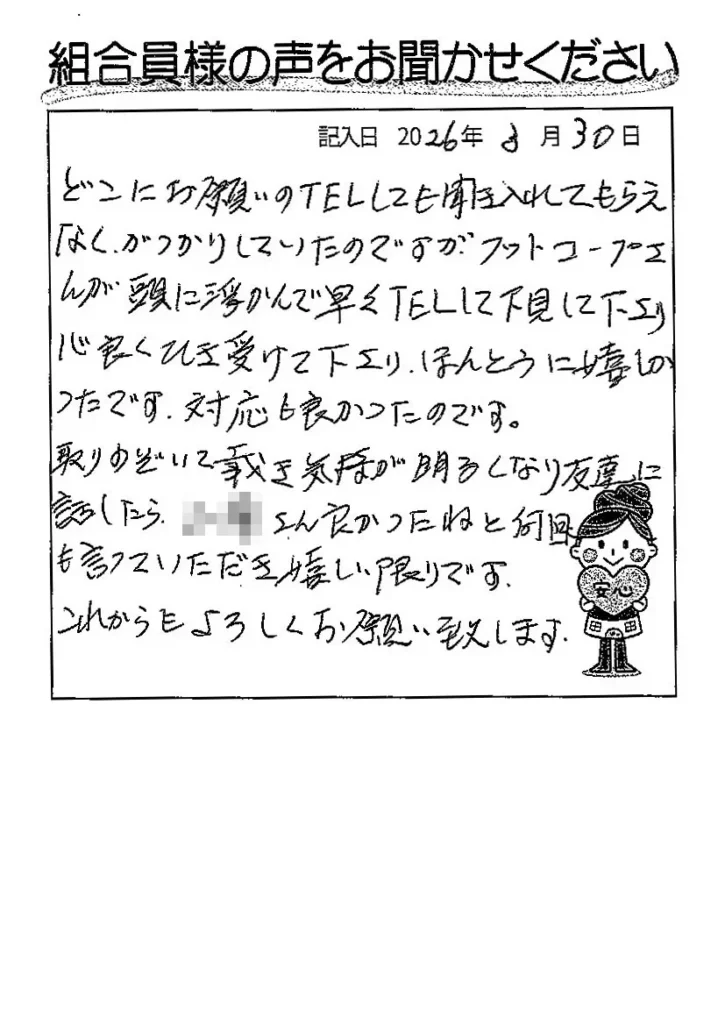 組合員様の声をお聞かせください
記入日 2026年 3月30日
どこにお願いのTELしても聞き入れてもらえ
なく、がっかりしていたのですが、フットコープさ
んが頭に浮かんで早くTELして下見して下さり
心良くひき受けて下さり、ほんとうに嬉しか
ったです。対応も良かったのです。
取りのぞいて戴き気持が明るくなり友達に
話したら、さん良かったねと何回
も言っていただき嬉しい限りです。
これからもよろしくお願い致します。
安心